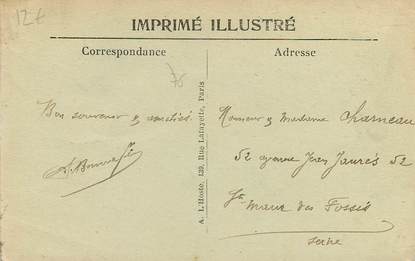 12 €
IMPRIMÉ ILLUSTRÉ
Correspondance
Adresse
Bon souvenir & amitiés.
A. L'Hoste, 139, Rue Lafayette, Paris
Monsieur & Madame Charneau
52 avenue Jean Jaurès 52
St
Maur des Fossés
Seine